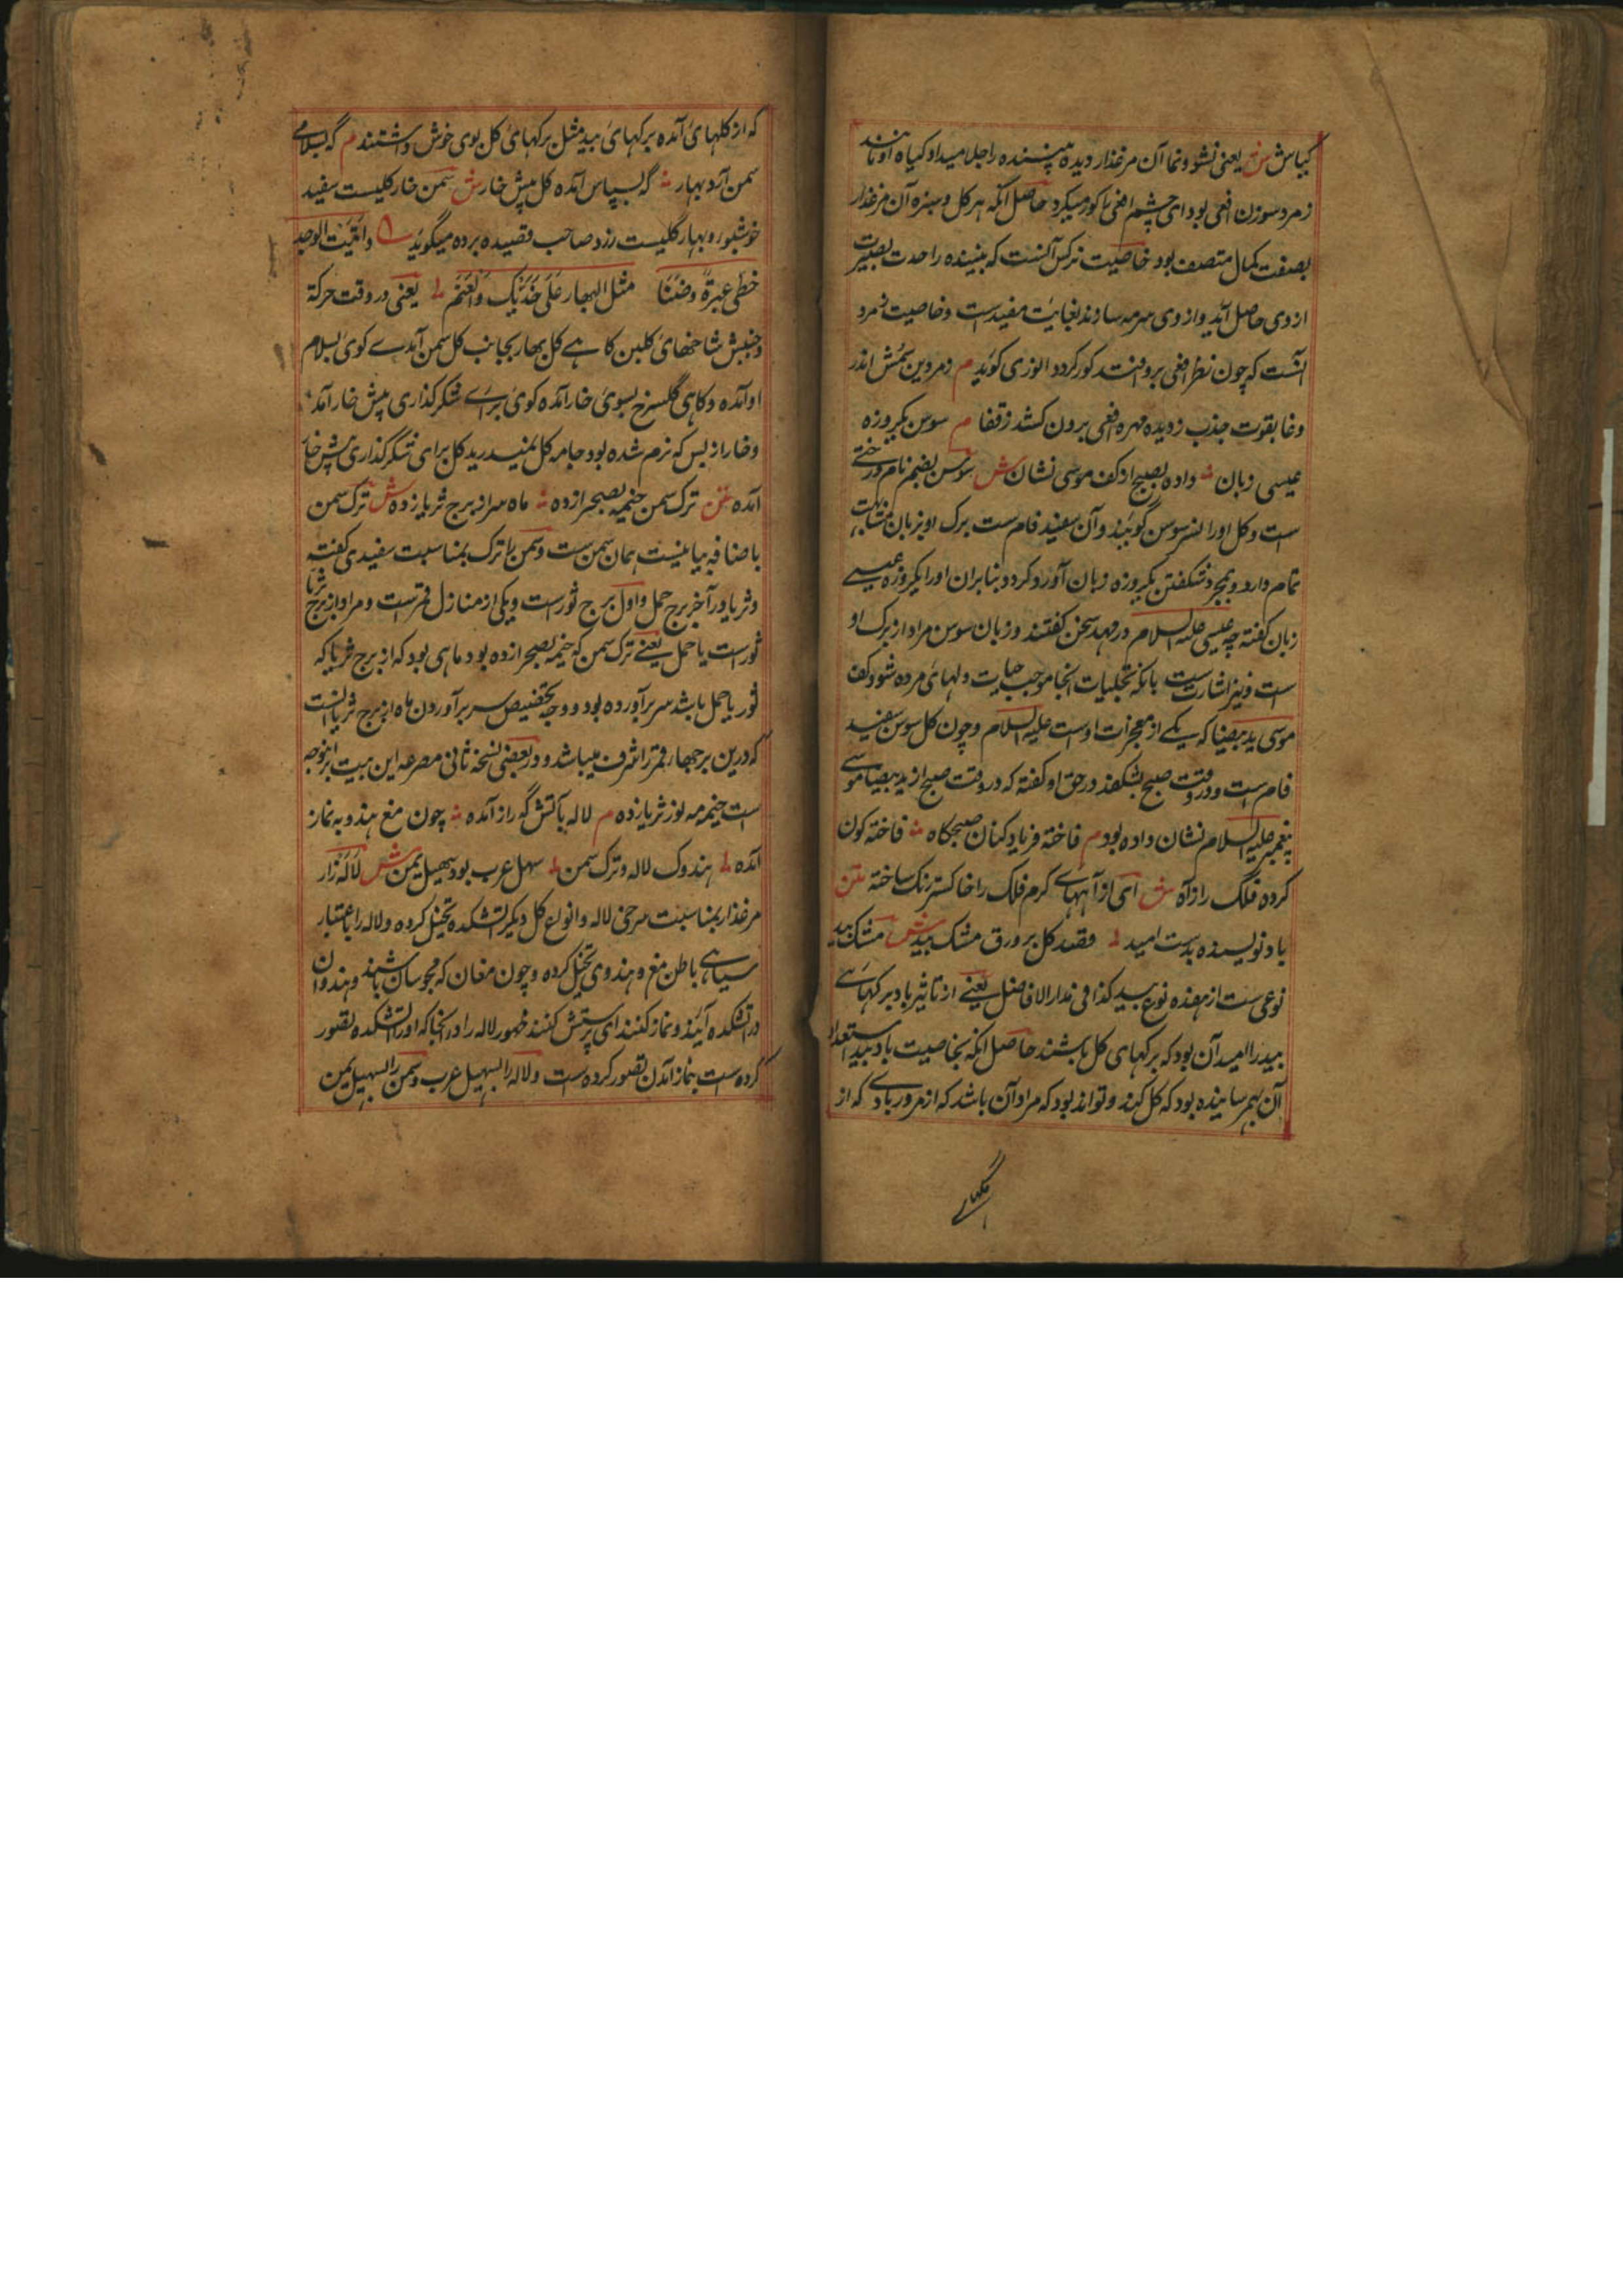 گیاش ش یعنی نشو و نما آن مرغذار دیده بیننده را جلا میداد و گیاه او مانند
زمرد سوزن افعی بود ای چشم افعی را کور میکرد حاصل آنکه هر گل و سبزه آن مرغذار
بصفت کمال متصف بود خاصیت نرگس آنست که بیننده را حدت بصیرت
از وی حاصل آید و از وی سرمه سازند بغایت مفیدست و خاصیت زمرد
آنست که چون نظر افعی برو افتد کور گردد انوری گوید م زمردین سمش اندر
وغا بقوت جذب ز دیده مهره افعی برون کشد ز قفا م سوسن یکروزه
عیسی زبان داده بصبح از کف موسی نشان ش سوسن بضم نام درختی
ست و گل او را نیز سوسن گویند و آن سفید فام ست برگ او بزبان مشابهت
تمام دارد و بمجرد شگفتن یکروزه زبان آور و گردد بنابران او را یکروزه عیسی
زبان گفته چه عیسی علیه السلام در مهد سخن گفتند و زبان سوسن مراد از برگ او
ست و نیز اشارت ست بانکه تجلیات انجا موجب حیات دلهای مرده شود و کف
موسی ید بیضا که یکی از معجزات اوست علیه السلام و چون گل سوسن سفید
فام ست و در وقت صبح بشگفد در حق او گفته که در وقت صبح از ید بیضا موسی
پیغمبر علیه السلام نشان داده بود م فاخته فریاد کنان صبحگاه فاخته گون
کرده فلک را ز آه ش ای از آههای گرم فلک را خاکستر رنگ ساخته متن
باد نویسنده بدست امید قصه گل بر ورق مشک بید ش مشک بید
نوعی ست از هفده نوع بید کذا فی مدار الافاضل یعنی از تاثیر باد برگهای
بید را امید آن بود که برگهای گل باشند حاصل آنکه بخاصیت باد بید استعداد
آن بهم رسانیده بود که گل کند و تواند بود که مراد آن باشد که از مرور بادی که از
که از گلهای آمده برگهای بید مثل برگهای گل بوی خوش داشتند م گه بسلامی
سمن آمد بهار گه بسپاس آمده گل پیش خار ش سمن خار گلیست سفید
خوشبو و بهار گلیست زرد صاحب قصیده برده میگوید و اثبت الوجد
خطی عبرة و ضنا مثل البهار علی خدیک و العنم یعنی در وقت حرکة
و جنبش شاخهای گلبن گاهی گل بهار بجانب گل سمن آمدی گوی بسلام
او آمده و گاهی گلسرخ بسوی خار آمده گوی برای شکر گذاری پیش خار آمد
و خار از بس که نرم شده بود جامه گل نمیدرید گل برای شکر گذاری پیش خار
آمده متن ترک سمن خیمه بصحرا زده ماه سر از برج ثریا زده ش ترک سمن
باضافه بیانیست همان سمن ست و سمن را ترک بمناسبت سفیدی گفته
و ثریا در آخر برج حمل و اول برج ثورست و یکی از منازل قمرست و مراد از برج ثریا
ثورست یا حمل یعنی ترک سمن که خیمه بصحرا زده بود ماهی بود که از برج ثریا که
ثور یا حمل باشد سر برآورده بود و وجه تخصیص سر برآوردن ماه از برج ثریا آنست
که درین برجها قمر را شرف میباشد و در بعضی نسخه ثانی مصرعه این بیت اینوجه
ست خیمه مه نور ثریا زده م لاله بآتش گه راز آمده چون مغ هندو به نماز
آمده هندوک لاله و ترک سمن سهل عرب بود سهیل یمن ش لاله زار
مرغذار بمناسبت سرخی لاله و انواع گل دیگر آتشکده تخیل کرده و لاله را باعتبار
سیاهی باطن مغ و هندوی تخیل کرده و چون مغان که مجوسان باشند و هندوان
در آتشکده آیند و نماز کنند ای پرستش کنند ظهور لاله را در انجا که او را آتشکده تصور
کرده ست بنماز آمدن تصور کرده ست و لاله را بسهیل عرب و سمن را بسهیل یمن